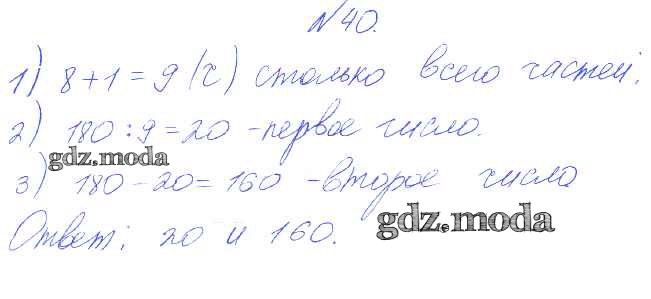 №40.
1) 8+1=9 (ч) столько всего частей.
2) 180:9=20 -первое число.
gdz.moda
3) 180-20=160 -второе число
gdz.moda
Ответ: 20 и 160.